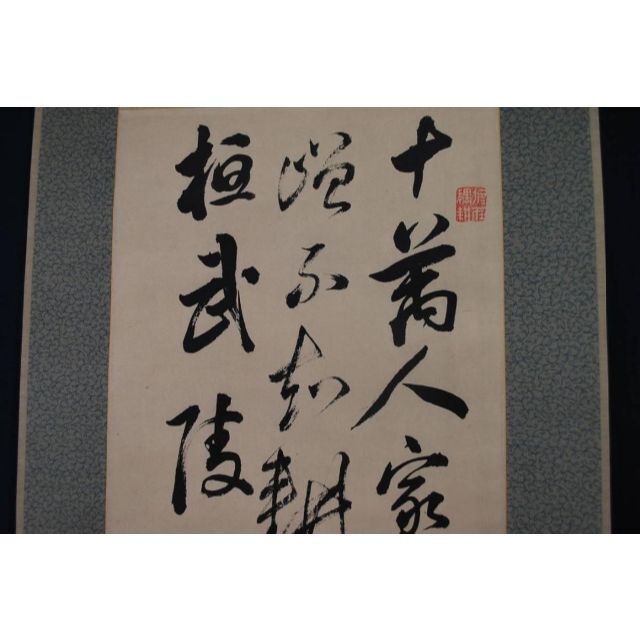 十萬人家
不知耕
桓武陵